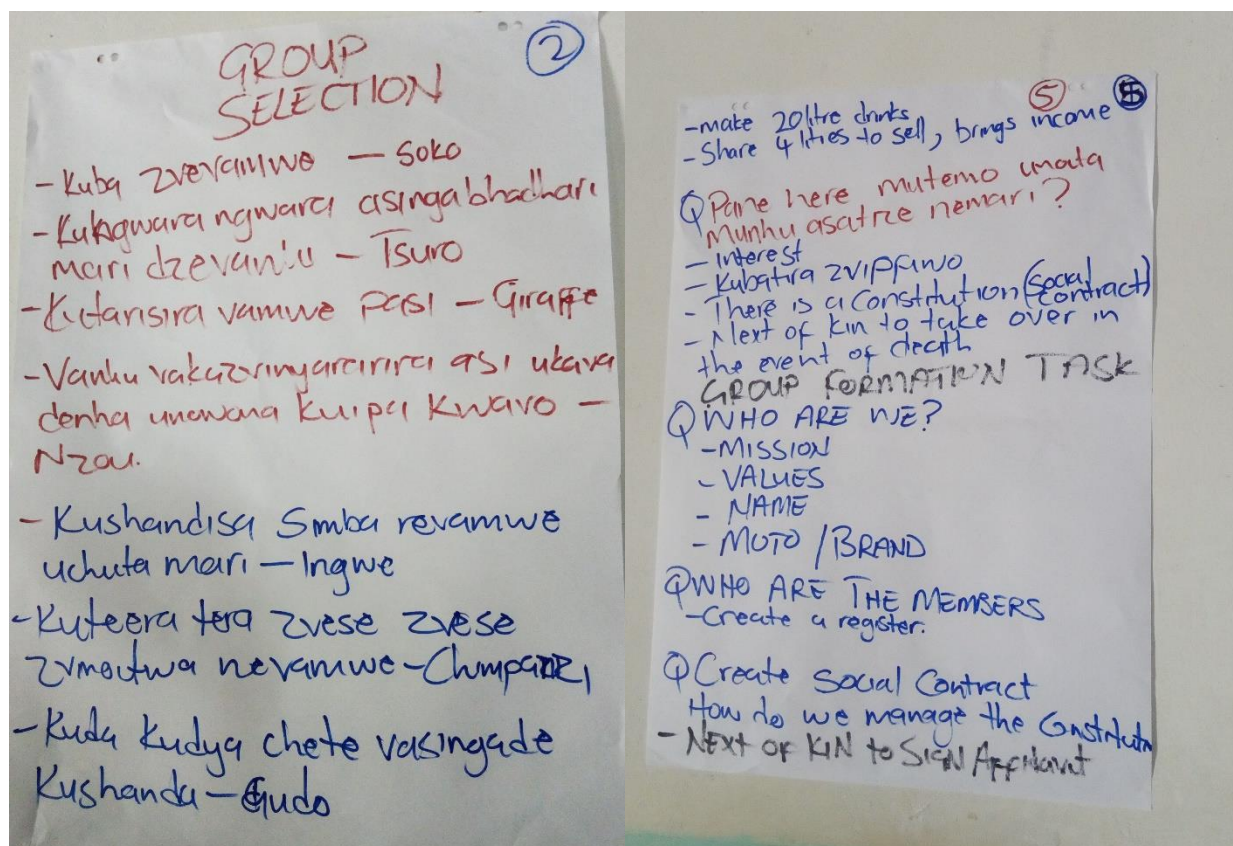 GROUP
SELECTION
②
- Kuba zvevamwe — Soko
- Kungwara ngwara asingabhadhari
mari dzevanhu - Tsuro
- Kutarisira vamwe pasi - Giraffe
- Vanhu vakazvinyararira asi ukava
denha unowana kuipa kwavo -
Nzou.
- Kushandisa Simba revamwe
uchuta mari - Ingwe
- Kuteera tera zvese zvese
zvinoitwa nevamwe - Chimpanzi
- Kuda kudya chete vasingade
kushanda - Gudo
⑤
- make 20 litre drinks
- Share 4 litres to sell, brings income
Q Pane here mutemo unoita
munhu asatize nemari?
- Interest
- Kubatira zvipfuwo
- There is a Constitution (Social
Contract)
- Next of kin to take over in
the event of death
GROUP FORMATION TASK
Q WHO ARE WE?
- MISSION
- VALUES
- NAME
- MOTO / BRAND
Q WHO ARE THE MEMBERS
- Create a register.
Q Create Social Contract
How do we manage the Constitutn
- NEXT OF KIN to SIGN Affidavit